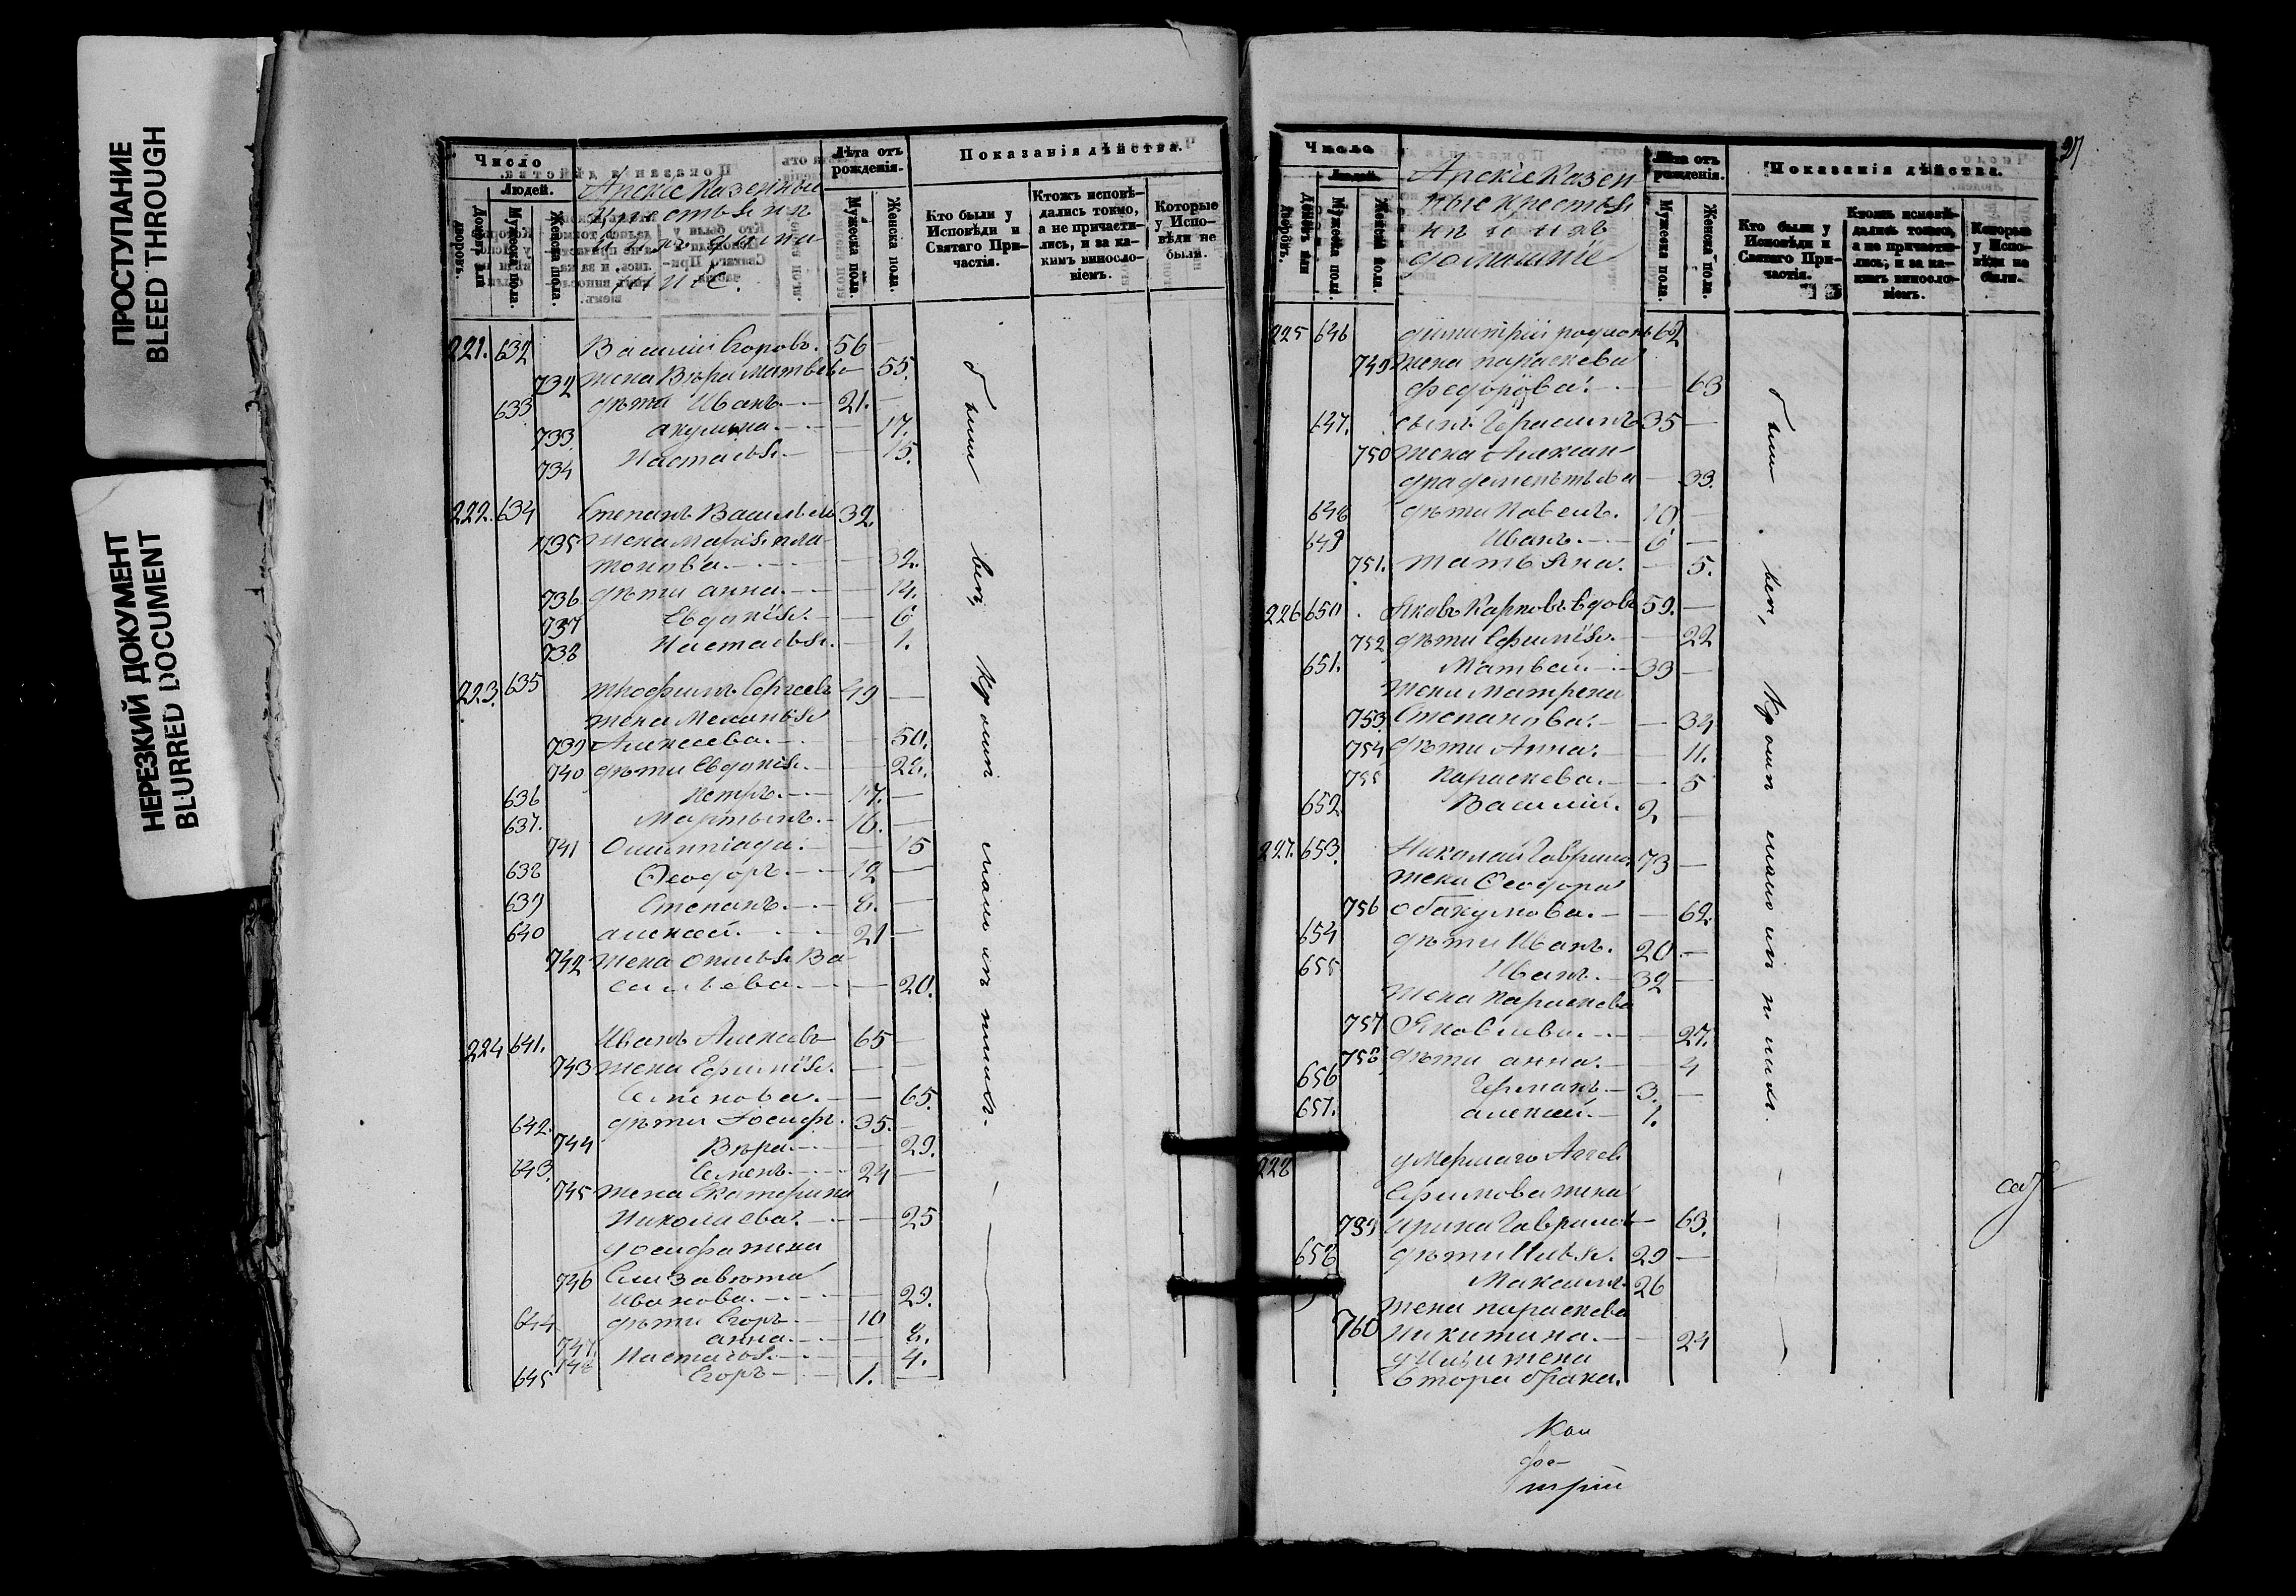 ПРОСТУПАНИЕ
BLEED THROUGH
НЕРЕЗКИЙ ДОКУМЕНТ
BLURRED DOCUMENT
Число
Людей.
Мужеска пола.
Женска пола.
Арскіе Казенныи
крестьянѣ
и ихъ домаш
ніе.
Лѣта отъ рожденія.
Мужеска пола.
Женска пола.
Показанія дѣйства.
Кто были у Исповѣди и Святаго Причастія.
Ктожъ исповѣдались токмо, а не причастились, и за какимъ винословіемъ.
Которые у Исповѣди не были.
221. 632 Василій Егоровъ. 56 —
732 жена Вѣра Матвѣева 55.
633 дѣти Иванъ. — 21. —
733 акулина. — 17.
734 Настасья. — 15.
222. 634 Степанъ Васильевъ 32.
735 жена Марія пла
тонова. — 32.
736 дѣти анна. — 14.
737 Евдокія. — 6
738 Настасья. — 1.
223. 635 трофимъ Сергеевъ 49 —
жена Меланья
739 Алексеева. — 50.
740 дѣти Евдокія. — 28.
636 петръ. — 17. —
637. Мартынъ. — 16. —
741 Олимпіада. — 15
638 Ѳеодоръ. — 12 —
639 Степанъ. — 8. —
640 алексей. — 21 —
742 жена Ва
сильева. — 20.
224 641. Иванъ Алексеевъ 65 —
743 жена Ефимія. —
Семенова. — 65.
642. дѣти Іосифъ. 35. —
744 Вѣра. — 29.
643. Семенъ. — 24 —
745 жена Екатерина
Николаева. — 25
у осифа жена
746 Елизавета
иванова. — 29.
644 дѣти Егоръ — 10
747. анна. — 8.
748 Настасья. — 4.
645 Егоръ — 1. —
были всѣ, Кромѣ малолѣтнихъ.
27
Число
Людей.
Мужеска пола.
Женска пола.
Арскіе Казен
ные крестья
нѣ и ихъ
домашніе
Лѣта отъ рожденія.
Мужеска пола.
Женска пола.
Показанія дѣйства.
Кто были у Исповѣди и Святаго Причастія.
Ктожъ исповѣдались токмо, а не причастились, и за какимъ винословіемъ.
Которые у Исповѣди не были.
225 646 димитрій родионъ 62
749 жена параскева
федорова. — 63
647. сынъ Герасимъ 35 —
750 жена Алексан
дра дементьева — 33.
648 дѣти Павелъ. 10 —
649 Иванъ. — 6 —
751. татьяна. — 5.
226 650 Яковъ Карповъ вдовъ 59. —
752 дѣти Ефимія. — 22
651. Матвей. — 33 —
жена Матрена
753. Степанова. — 34
754 дѣти Анна. — 11.
755 параскева. — 5
652. Василій. 2. —
227. 653. Николай Гаврило. 73 —
жена Ѳеодора
756 обакумова. — 62.
654 дѣти Иванъ. 20. —
655 Иванъ. — 32 —
жена параскева
757 Яковлева. — 27.
758 дѣти анна. — 4
656 Германъ. — 3. —
657. алексей. — 1.
228 умершаго
Ефимова жена
759 ирина Гаврилов — 63.
658 дѣти Илья. 29 —
Максимъ. 26
жена параскева
760 никитина. — 24
у Ильи жена
втора брака.
были всѣ, Кромѣ малолѣтнихъ.